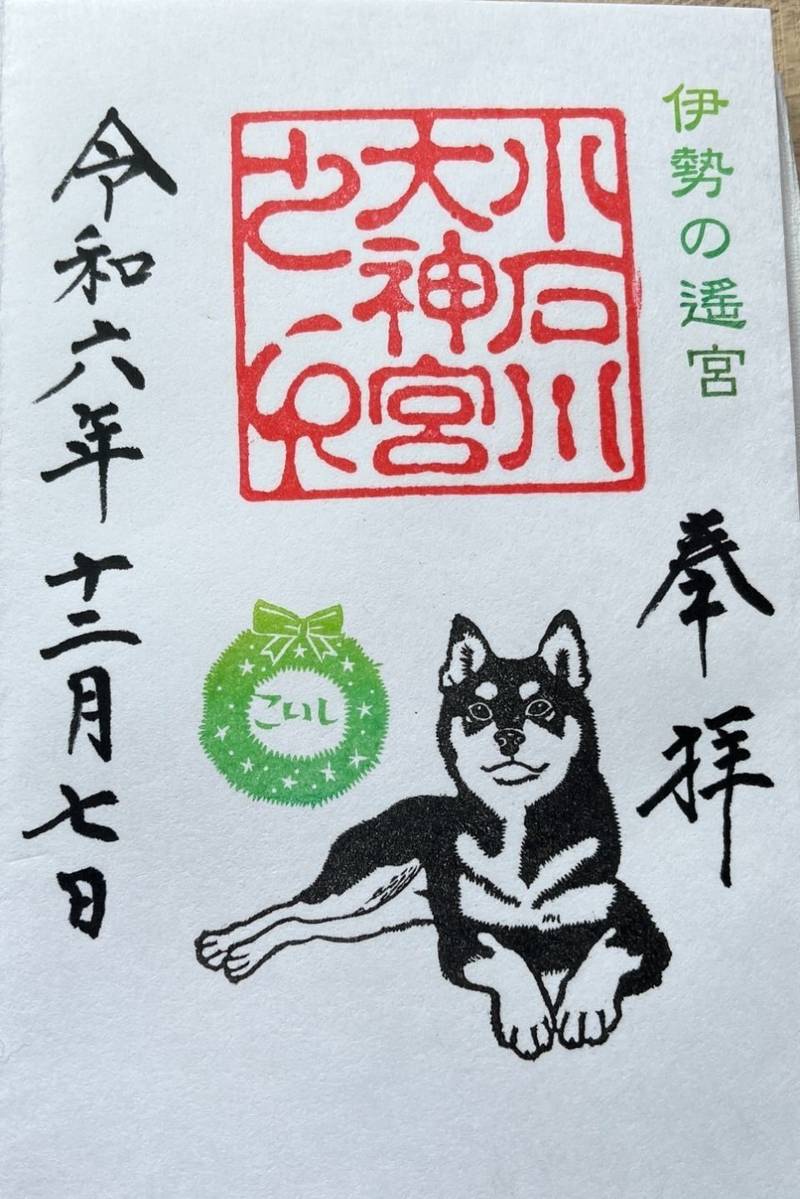 伊勢の遥宮
奉拝
小石川
大神宮
之印
こいし
令和六年十二月七日